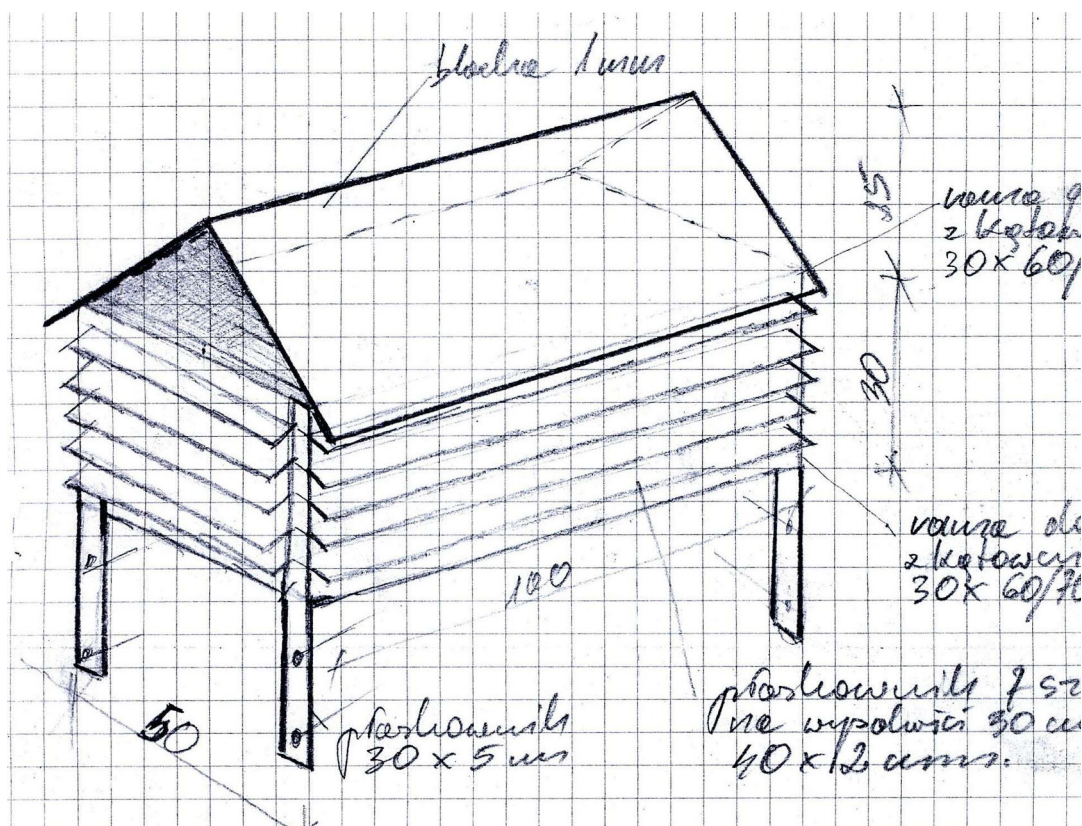 blacha 1 mm
25
rama g
z kątow
30 x 60/
30
rama do
z kątown
30 x 60/70
100
50
płaskownik
30 x 5 mm
płaskownik 7 sz
na wysokości 30 cm
40 x 2 mm.